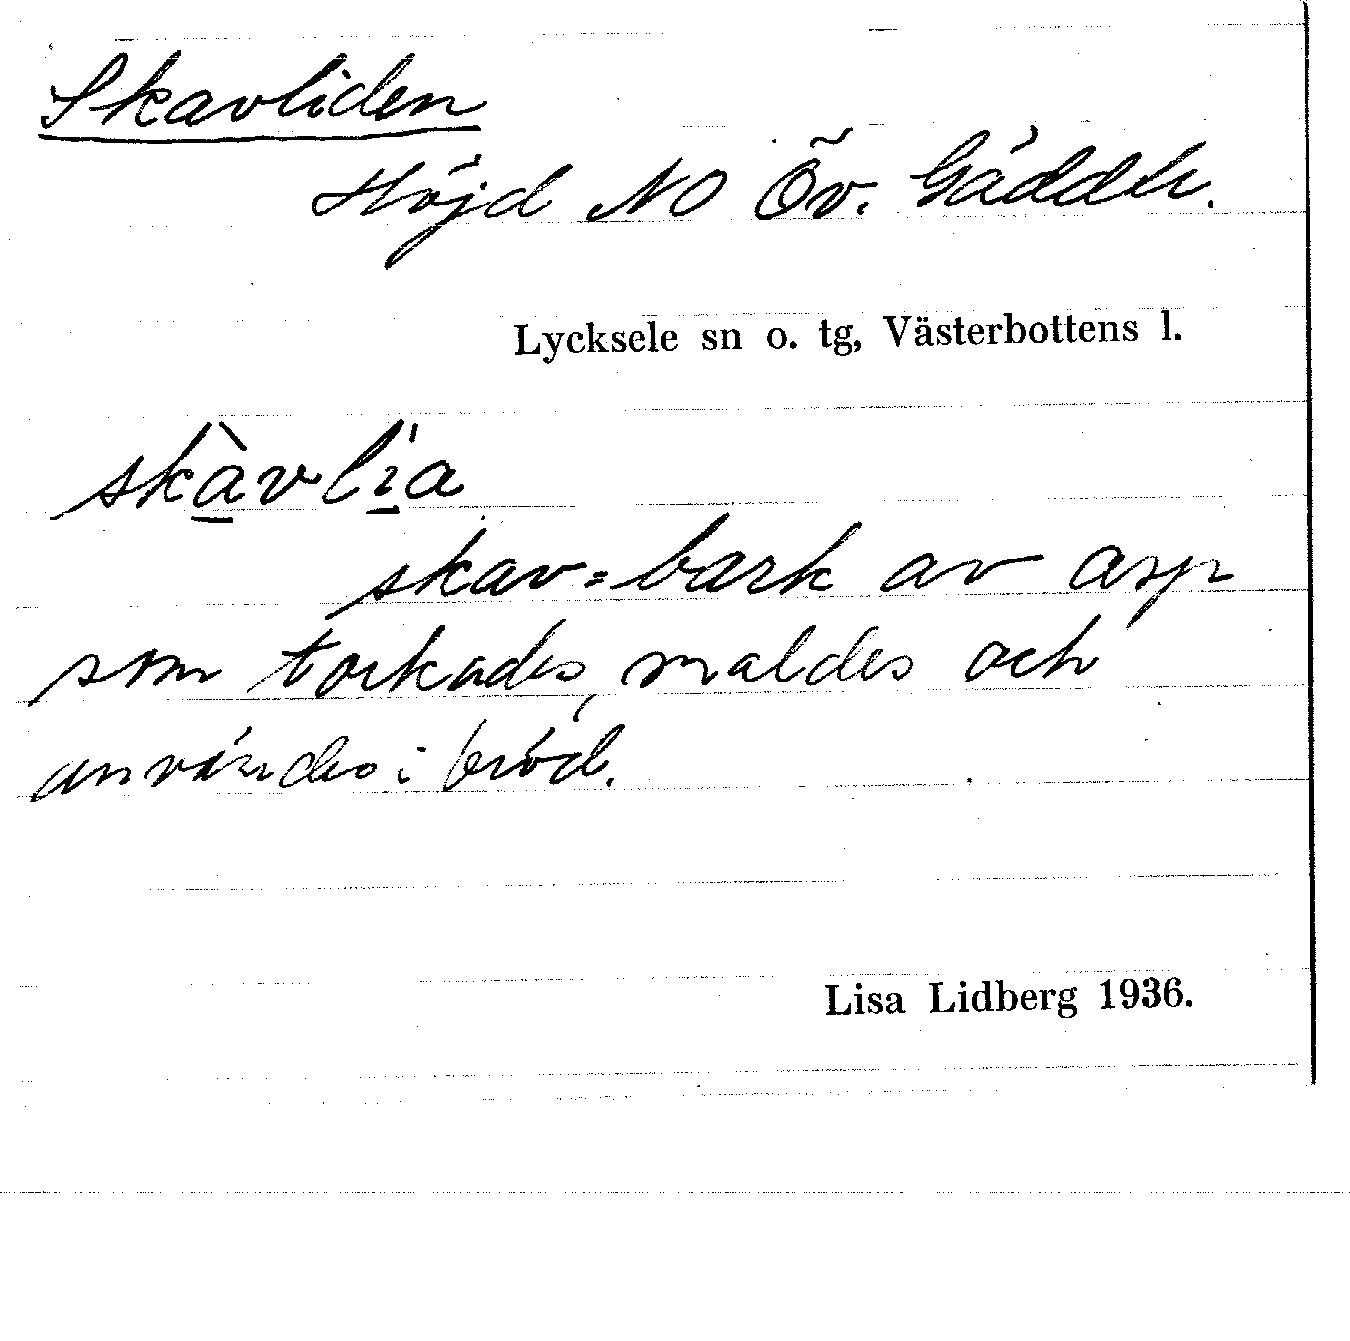 Skavliden
Höjd NO Öv. Gäddtr.
Lycksele sn o. tg, Västerbottens l.
skàvlía
skav = bark av asp
som torkades, maldes och
användes i bröd.
Lisa Lidberg 1936.